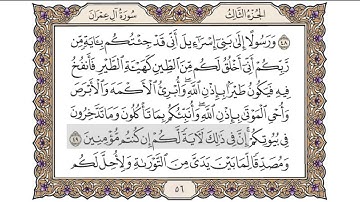 الجزء الثالث
سورة آل عمران
٤٨ وَرَسُولًا إِلَىٰ بَنِىٓ إِسْرَٰٓءِيلَ أَنِّى قَدْ جِئْتُكُم بِـَٔايَةٍ مِّن
رَّبِّكُمْ أَنِّىٓ أَخْلُقُ لَكُم مِّنَ ٱلطِّينِ كَهَيْـَٔةِ ٱلطَّيْرِ فَأَنفُخُ
فِيهِ فَيَكُونُ طَيْرًۢا بِإِذْنِ ٱللَّهِ ۖ وَأُبْرِئُ ٱلْأَكْمَهَ وَٱلْأَبْرَصَ
وَأُحْىِ ٱلْمَوْتَىٰ بِإِذْنِ ٱللَّهِ ۖ وَأُنَبِّئُكُم بِمَا تَأْكُلُونَ وَمَا تَدَّخِرُونَ
فِى بُيُوتِكُمْ ۚ إِنَّ فِى ذَٰلِكَ لَـَٔايَةً لَّكُمْ إِن كُنتُم مُّؤْمِنِينَ ٤٩
وَمُصَدِّقًا لِّمَا بَيْنَ يَدَىَّ مِنَ ٱلتَّوْرَىٰةِ وَلِأُحِلَّ لَكُم
٥٦